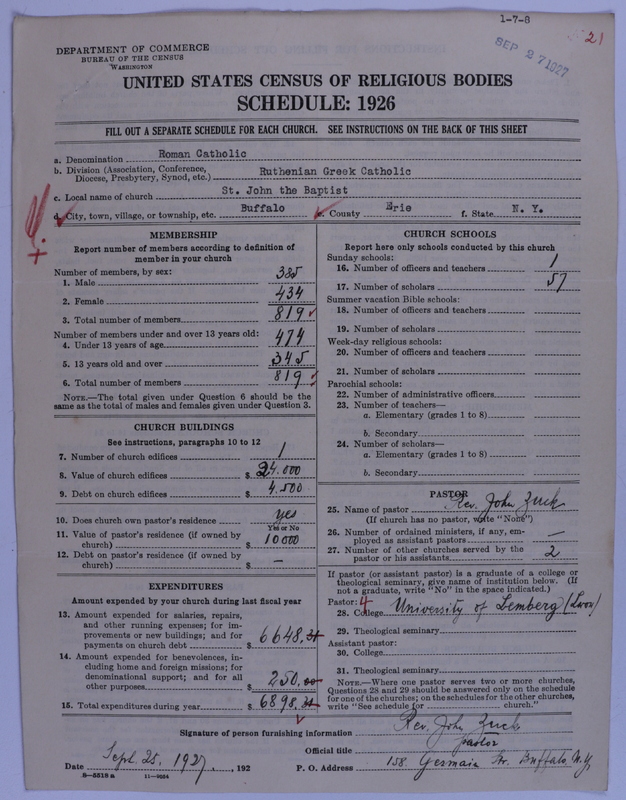 1-7-8
SEP 27 1927
21
DEPARTMENT OF COMMERCE
BUREAU OF THE CENSUS
WASHINGTON
UNITED STATES CENSUS OF RELIGIOUS BODIES
SCHEDULE: 1926
FILL OUT A SEPARATE SCHEDULE FOR EACH CHURCH. SEE INSTRUCTIONS ON THE BACK OF THIS SHEET
a. Denomination Roman Catholic
b. Division (Association, Conference, Diocese, Presbytery, Synod, etc.) Ruthenian Greek Catholic
c. Local name of church St. John the Baptist
d. City, town, village, or township, etc. Buffalo e. County Erie f. State N. Y.
MEMBERSHIP
Report number of members according to definition of
member in your church
Number of members, by sex:
1. Male 385
2. Female 434
3. Total number of members 819
Number of members under and over 13 years old:
4. Under 13 years of age 474
5. 13 years old and over 345
6. Total number of members 819
NOTE.—The total given under Question 6 should be
same as the total of males and females given under Question 3.
CHURCH BUILDINGS
See instructions, paragraphs 10 to 12
7. Number of church edifices 1
8. Value of church edifices $ 24.000
9. Debt on church edifices $ 4.500
10. Does church own pastor's residence yes
Yes or No
11. Value of pastor's residence (if owned by
church) $ 10000
12. Debt on pastor's residence (if owned by
church) $ —
EXPENDITURES
Amount expended by your church during last fiscal year
13. Amount expended for salaries, repairs,
and other running expenses; for im-
provements or new buildings; and for
payments on church debt $ 6648.31
14. Amount expended for benevolences, in-
cluding home and foreign missions; for
denominational support; and for all
other purposes $ 250.00
15. Total expenditures during year $ 6898.31
CHURCH SCHOOLS
Report here only schools conducted by this church
Sunday schools:
16. Number of officers and teachers 1
17. Number of scholars 57
Summer vacation Bible schools:
18. Number of officers and teachers
19. Number of scholars
Week-day religious schools:
20. Number of officers and teachers
21. Number of scholars
Parochial schools:
22. Number of administrative officers
23. Number of teachers—
a. Elementary (grades 1 to 8)
b. Secondary
24. Number of scholars—
a. Elementary (grades 1 to 8)
b. Secondary
PASTOR
25. Name of pastor Rev. John Zuck
(If church has no pastor, write "None")
26. Number of ordained ministers, if any, em-
ployed as assistant pastors —
27. Number of other churches served by the
pastor or his assistants 2
If pastor (or assistant pastor) is a graduate of a college or
theological seminary, give name of institution below. (If
not a graduate, write "No" in the space indicated.)
Pastor: 4
28. College University of Lemberg (Lwow)
29. Theological seminary
Assistant pastor:
30. College
31. Theological seminary
NOTE.—Where one pastor serves two or more churches,
Questions 28 and 29 should be answered only on the schedule
for one of the churches; on the schedules for the other churches,
write "See schedule for church."
Signature of person furnishing information Rev. John Zuck
Official title pastor
Date Sept. 25. 1927, 192 P. O. Address 158 Germain Str. Buffalo N.Y.
8-5518 a 11-9024